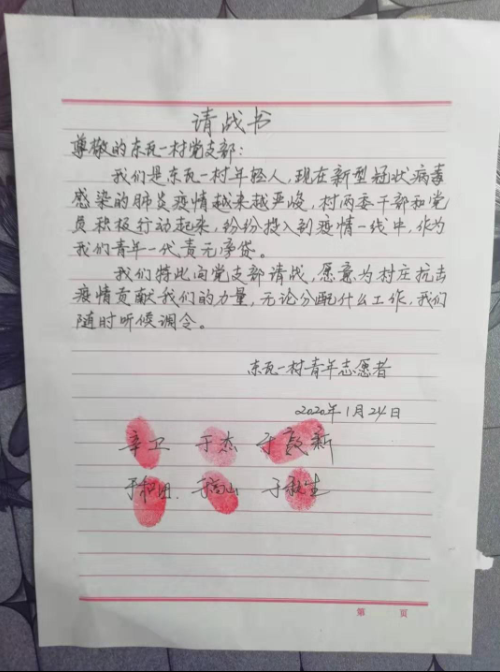 请战书
尊敬的东瓦一村党支部:
我们是东瓦一村年轻人,现在新型冠状病毒
感染的肺炎疫情越来越严峻,村两委干部和党
员积极行动起来,纷纷投入到疫情一线中,作为
我们青年一代责无旁贷。
我们特此向党支部请战,愿意为村庄抗击
疫情贡献我们的力量,无论分配什么工作,我们
随时听候调令。
东瓦一村青年志愿者
2020年1月24日
辛卫 于杰 于 新
于 于 山 于 生
第 页